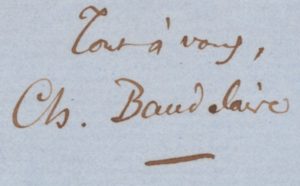 Tout à vous,
Ch. Baudelaire